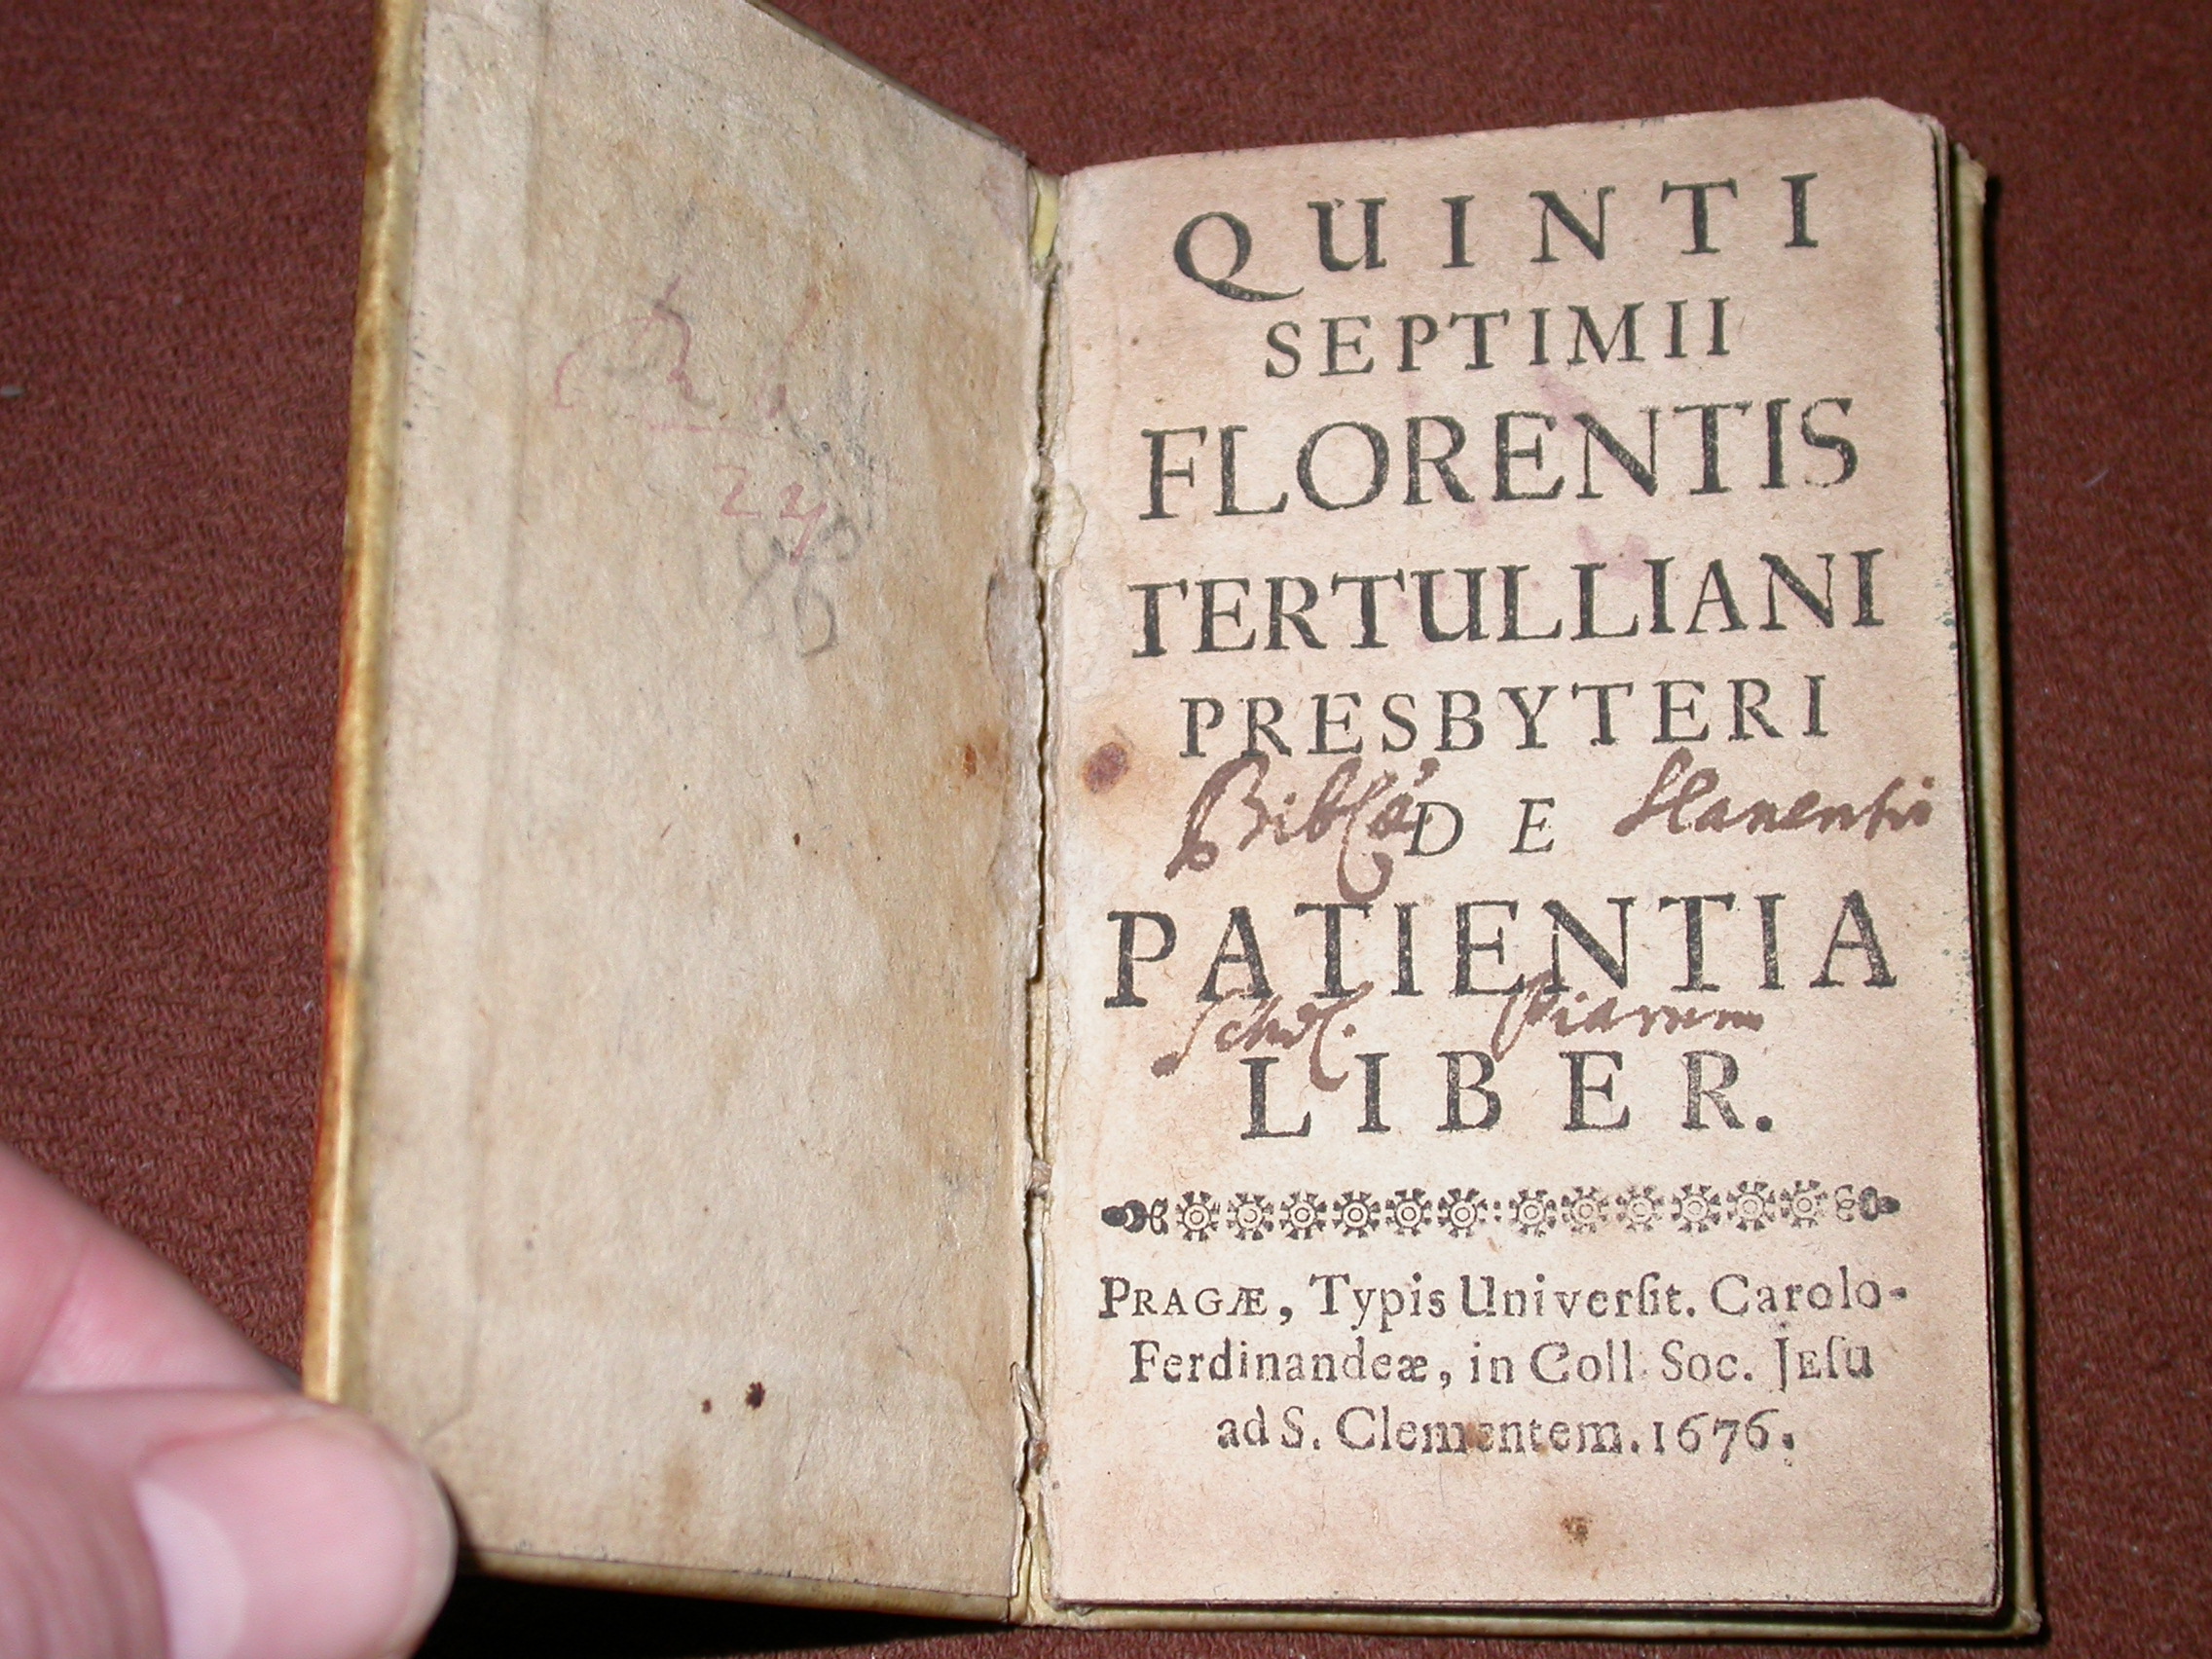 24
QUINTI
SEPTIMII
FLORENTIS
TERTULLIANI
PRESBYTERI
DE
PATIENTIA
Schol. Piarum
LIBER.
PRAGÆ, Typis Universit. Carolo-
Ferdinandeæ, in Coll. Soc. JEsu
ad S. Clementem. 1676.